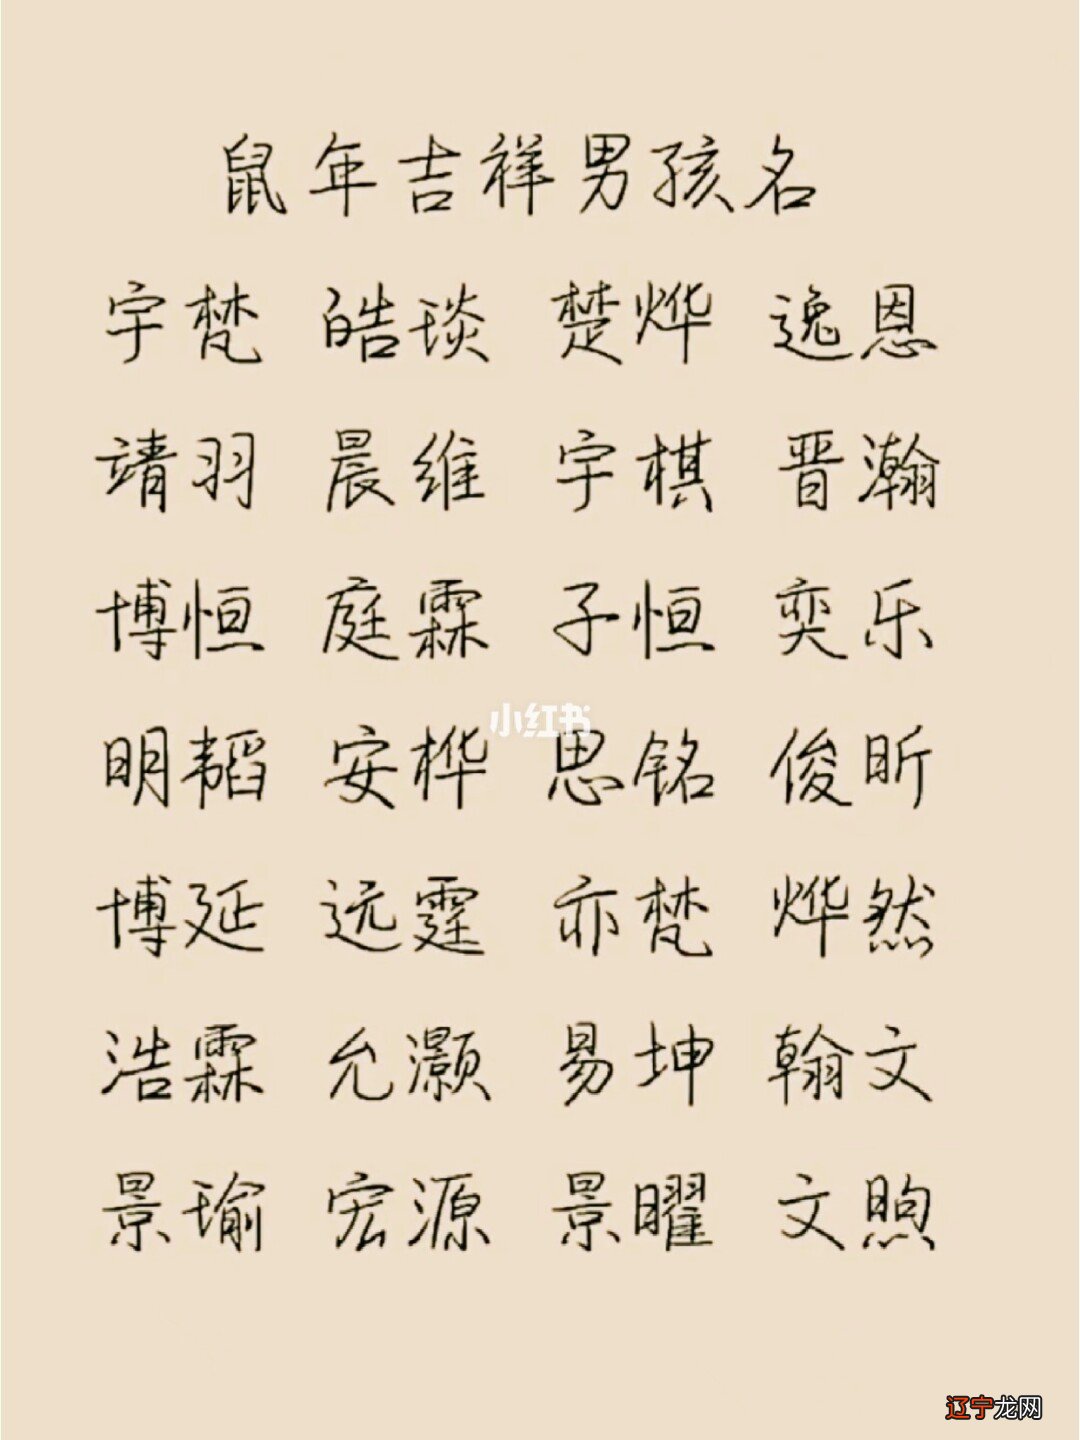 鼠年吉祥男孩名
宇梵 皓琰 楚烨 逸恩
靖羽 晨维 宇棋 晋瀚
博恒 庭霖 子恒 奕乐
小红书
明韬 安桦 思铭 俊昕
博延 远霆 亦梵 烨然
浩霖 允灏 易坤 翰文
景瑜 宏源 景曜 文煦
辽宁龙网